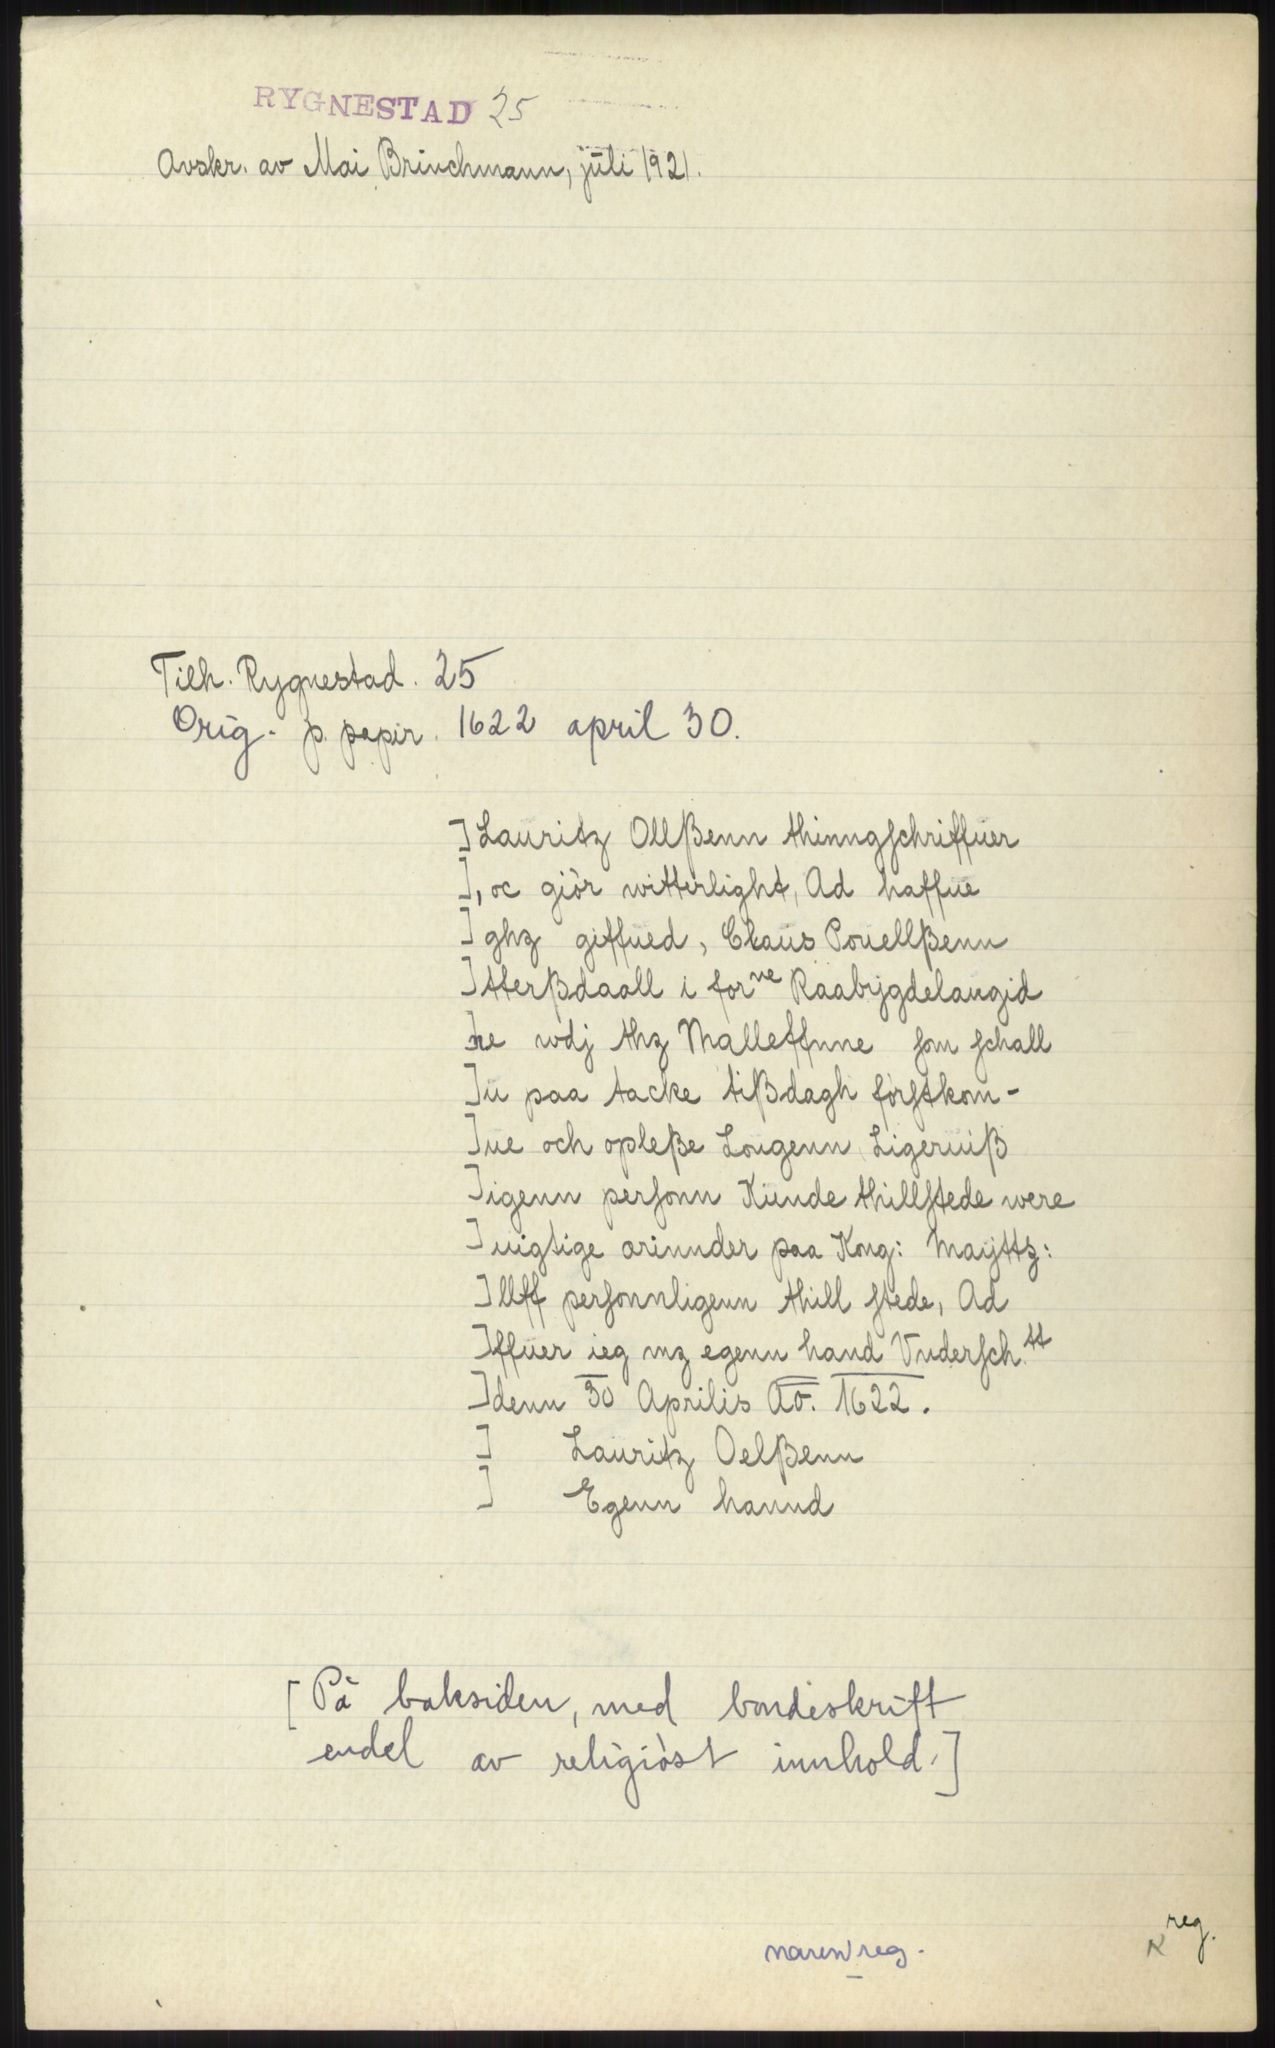 RYGNESTAD 25
Avskr. av Mai Brinchmann, juli 1921.
Tilh. Rygnestad. 25
Orig. p. papir. 1622 april 30.
] Lauritz Ollßenn thinngschriffuer
], oc giör witterlight, Ad haffue
] ghz giffued, Claus Pouellßenn
] tterßdaall i forne Raabygdelaugid
] re wdj thz Malleffnne som schall
] u paa tacke tißdagh förstkom-
] ue och opleße Lougenn Ligeruiß
] igenn personn Kunde thillstede were
] uigtige ærinnder paa Kong: Mayttz:
] llff personnligenn thill stede, Ad
] ffuer ieg mz egenn hand Vndersch.tt
] denn 30 Aprilis Ao. 1622.
] Lauritz Oelßenn
] Egenn hannd
[På baksiden, med bondeskrift
endel av religiöst innhold.]
reg.